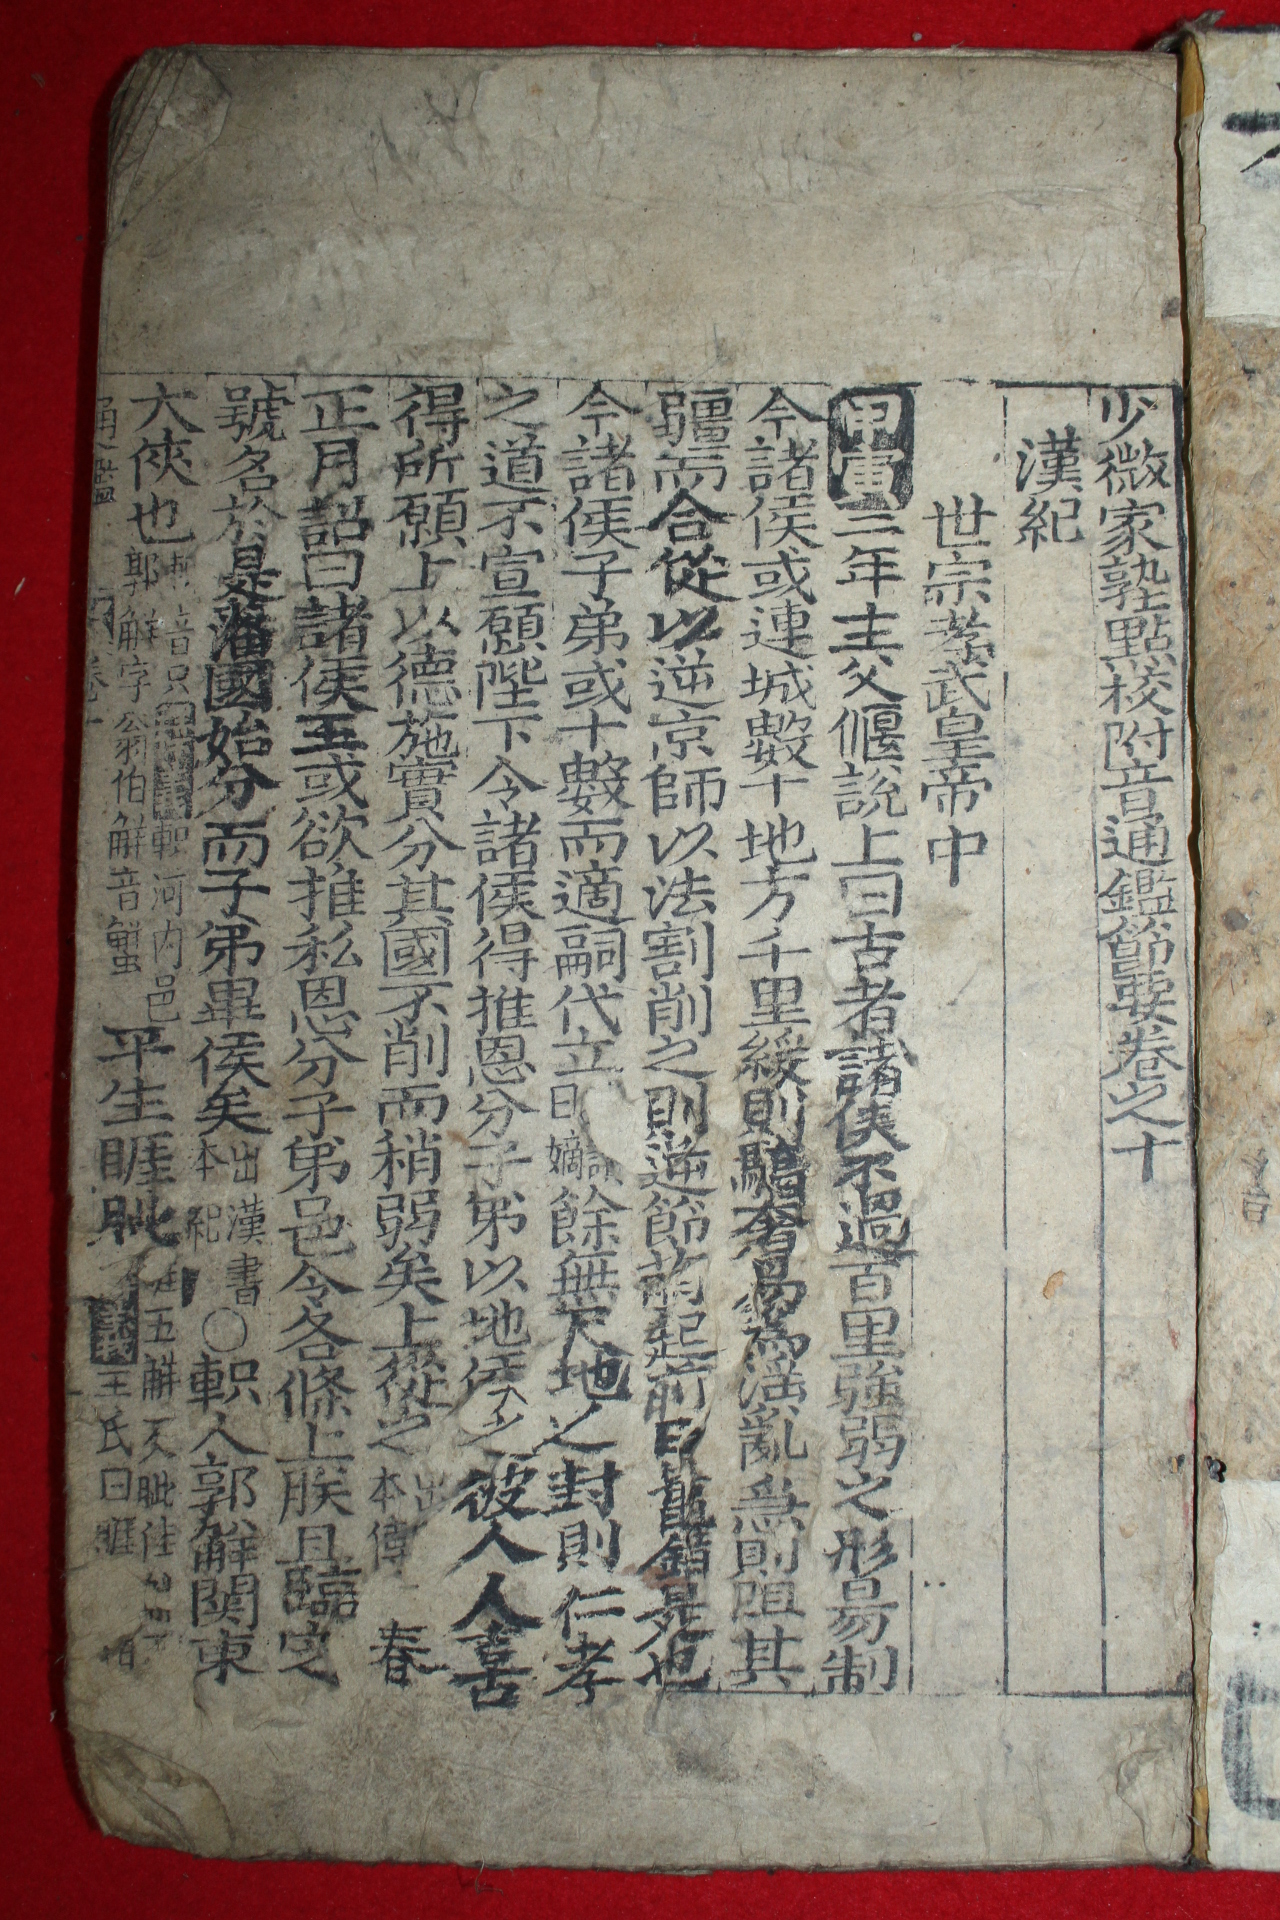 少微家塾點校附音通鑑節要卷之十
漢紀
世宗孝武皇帝中
甲寅二年主父偃說上曰古者諸侯不過百里強弱之形易制
今諸侯或連城數十地方千里緩則驕奢易為淫亂急則阻其
疆而合從以逆京師以法割削之則逆節萌起前日鼂錯是也
今諸侯子弟或十數而適嗣代立曰嫡餘無尺地之封則仁孝
之道不宣願陛下令諸侯得推恩分子弟以地侯之彼人人喜
得所願上以德施實分其國不削而稍弱矣上從之出本傳春
正月詔曰諸侯王或欲推私恩分子弟邑令各條上朕且臨定
號名於是藩國始分而子弟畢侯矣出漢書本紀〇軹人郭解關東
大俠也軹音只軹河內邑郭解字翁伯解音蟹平生睚眦睚五懈反眦仕王氏曰睚